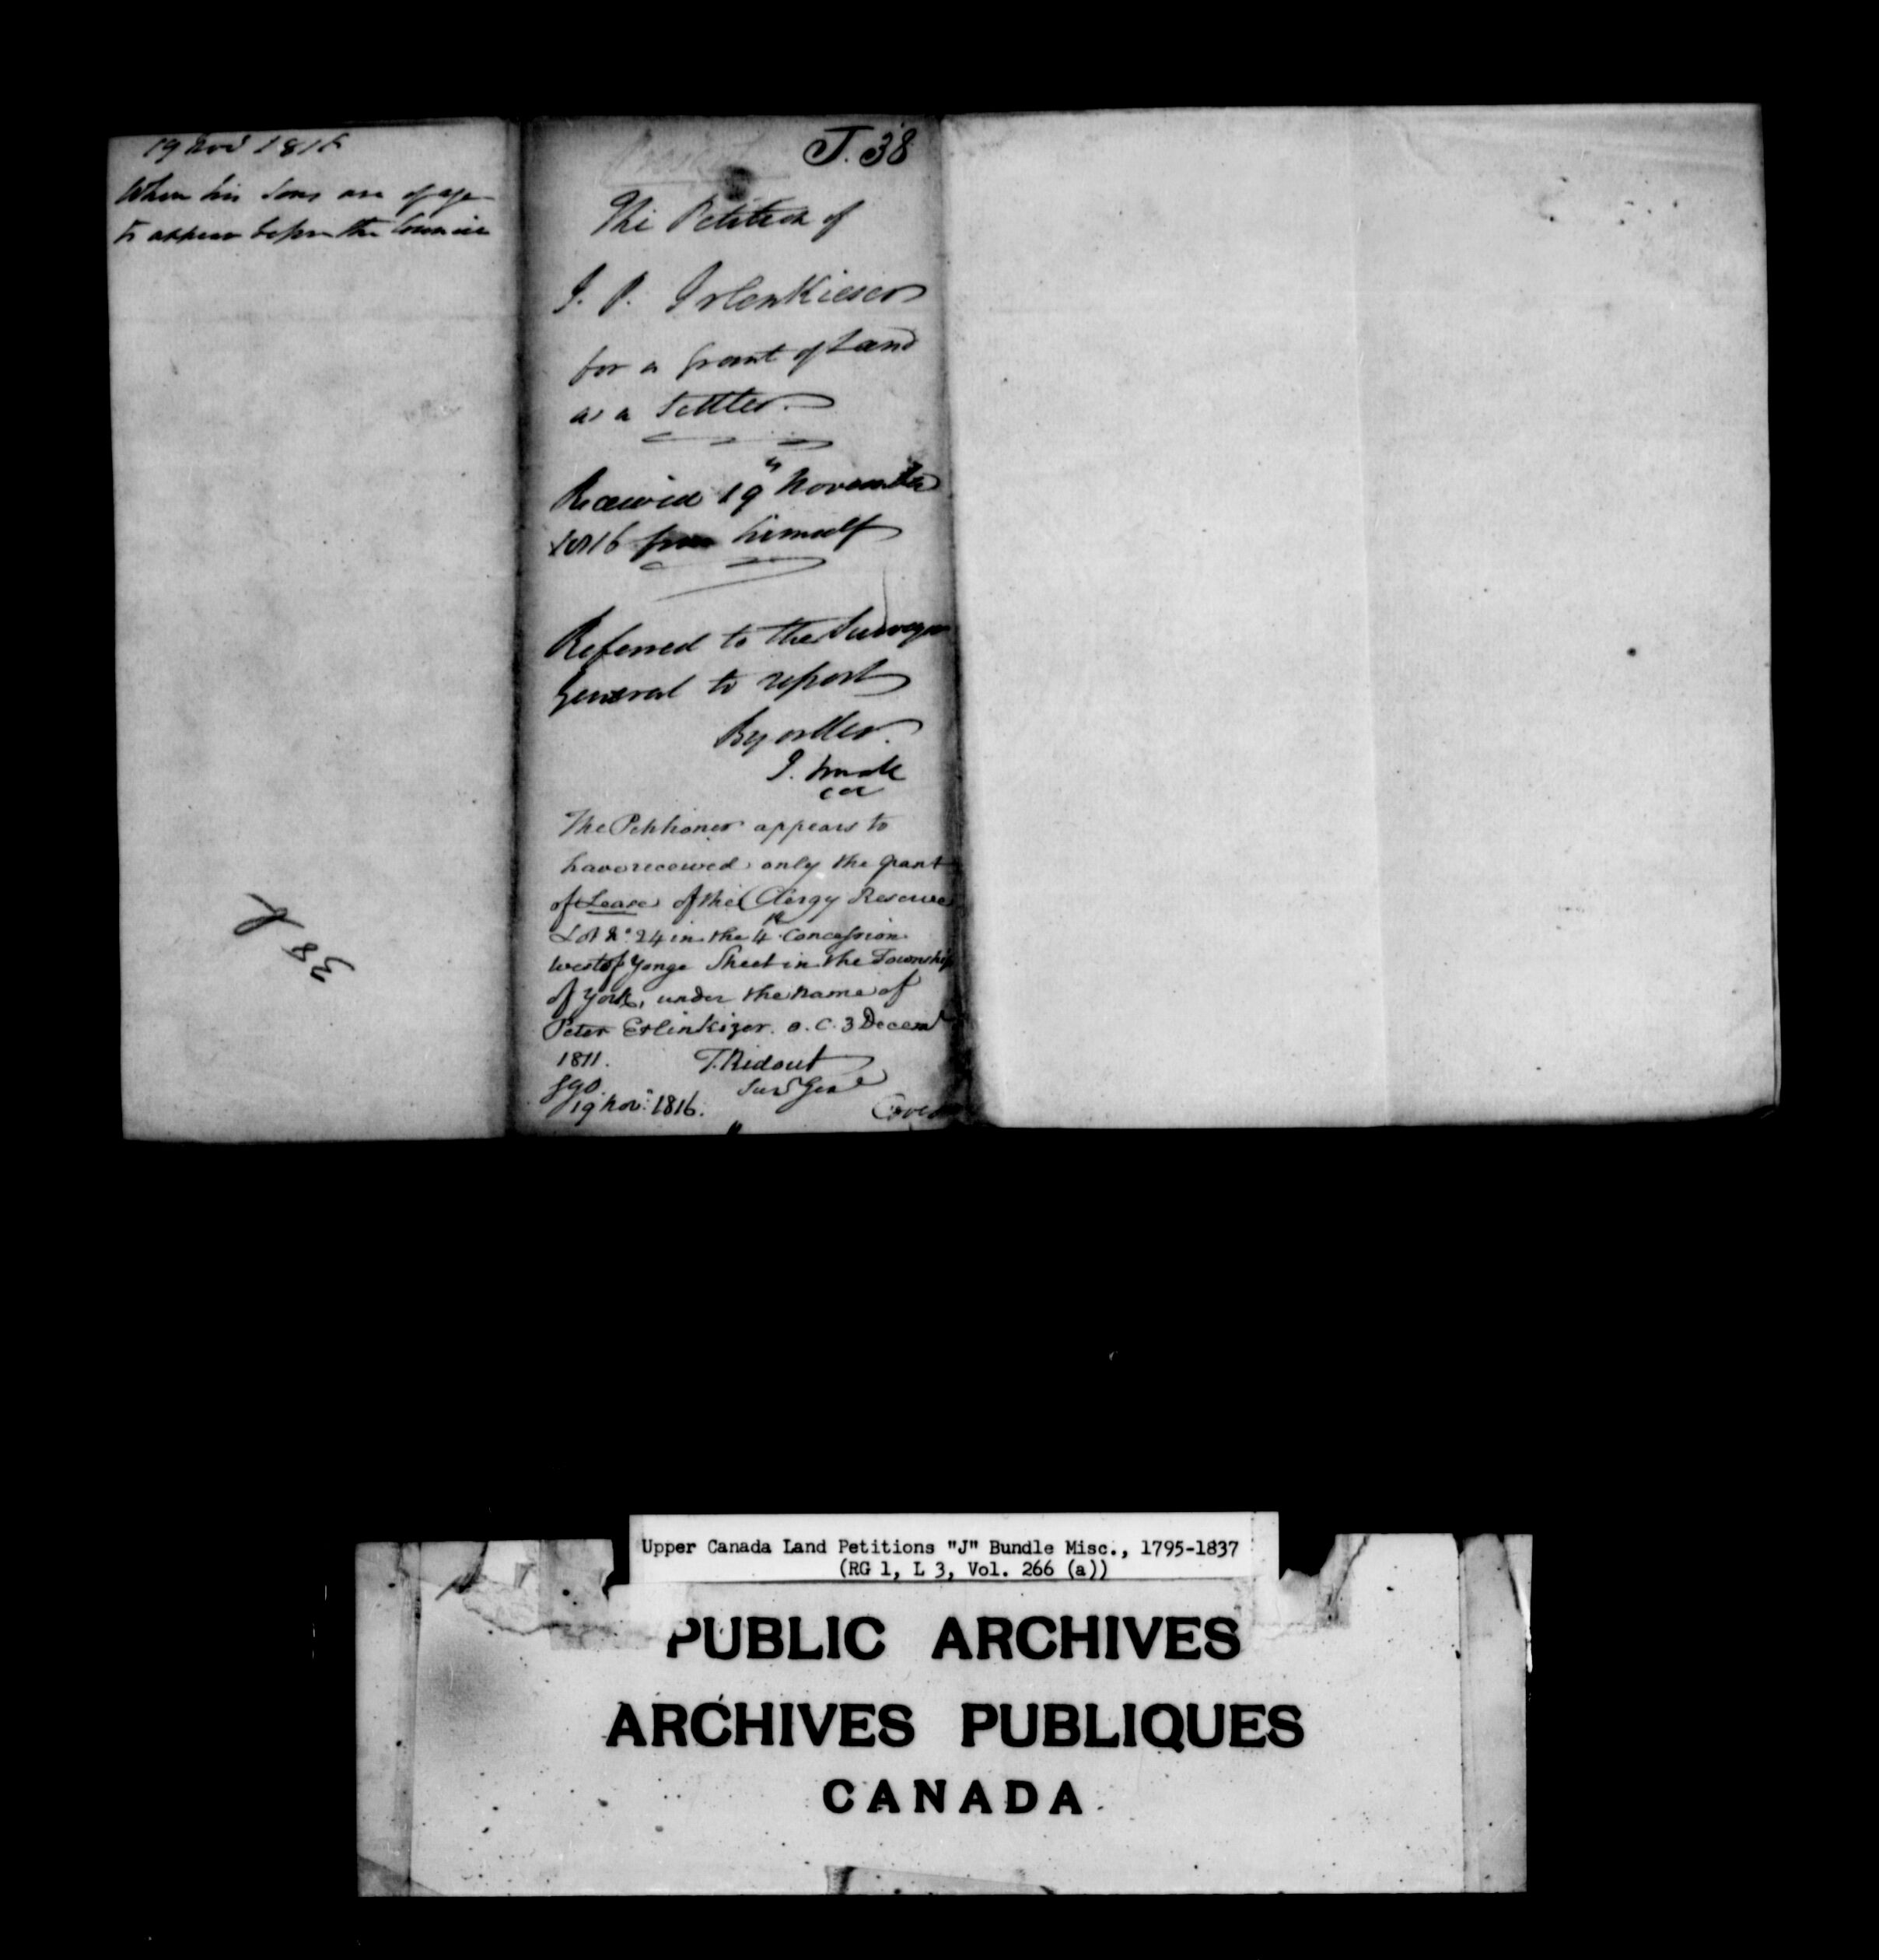 19 Novr 1816
When his Sons are of age
to appear before the Council
38
J. 38
The Petition of
J. P. Irlenkieser
for a Grant of Land
as a Settler.
Received 19th November
1816 from himself
Referred to the Surveyor
General to report
By order.
J. Small
The Petitioner appears to
have received only the grant
of Lease of the Clergy Reserve
Lot No. 24 in the 4th Concession
West of Yonge Street in the Township
of York, under the name of
Peter Erlinkizer. O.C. 3 Decemr
1811. T. Ridout
Survr Genl
SGO.
19 Novr. 1816.
Over
Upper Canada Land Petitions "J" Bundle Misc., 1795-1837
(RG 1, L 3, Vol. 266 (a))
PUBLIC ARCHIVES
ARCHIVES PUBLIQUES
CANADA